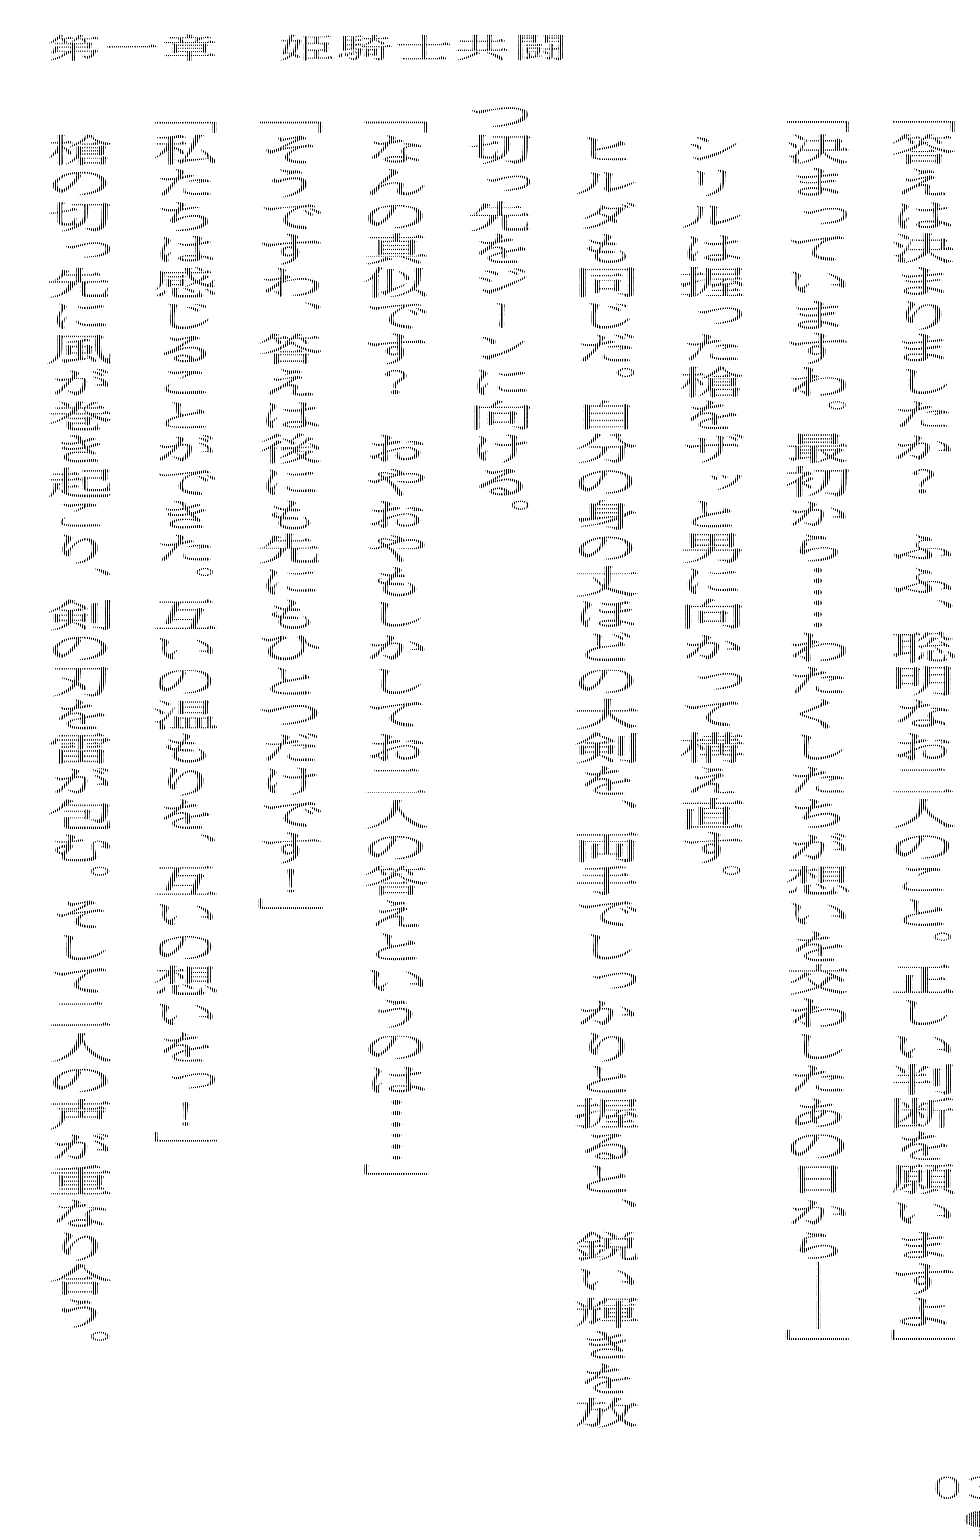 第一章　姫騎士共闘
「答えは決まりましたか？　ふふ、聡明なお二人のこと。正しい判断を願いますよ」
「決まっていますわ。最初から……わたくしたちが想いを交わしたあの日から――」
　シリルは握った槍をザッと男に向かって構え直す。
　ヒルダも同じだ。自分の身の丈ほどの大剣を、両手でしっかりと握ると、鋭い輝きを放
つ切っ先をジーンに向ける。
「なんの真似です？　おやおやもしかしてお二人の答えというのは……」
「そうですわ、答えは後にも先にもひとつだけです！」
「私たちは感じることができた。互いの温もりを、互いの想いをっ！」
　槍の切っ先に風が巻き起こり、剣の刃を雷が包む。そして二人の声が重なり合う。